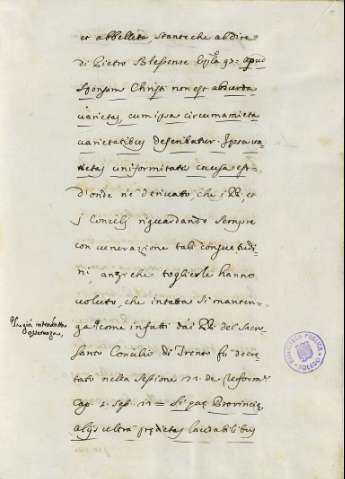 et abbellita, stante che al dire
di Pietro Blessense Ep.la 92: apud
Sponsam Christi non est absurda
varietas, cum ipsa circumamicta
varietatibus describatur. Ipsa va
rietas uniformitatis causa est.
d'onde n'è derivato, che i PP., et
i Concilj riguardando sempre
con venerazione tali consuetudi
ni, anzi che toglierle hanno
voluto, che intatte si manten-
ga
osservanza,
come infatti dai PP. del Sacro
Santo Concilio di Trento fu decre
tato nella Sessione 22. de Reform.
Cap. 1. = Si quae Provinciae
aliis ultra praedictas laudabilibus
BIBLIOTECA PUBLICA
TOLEDO